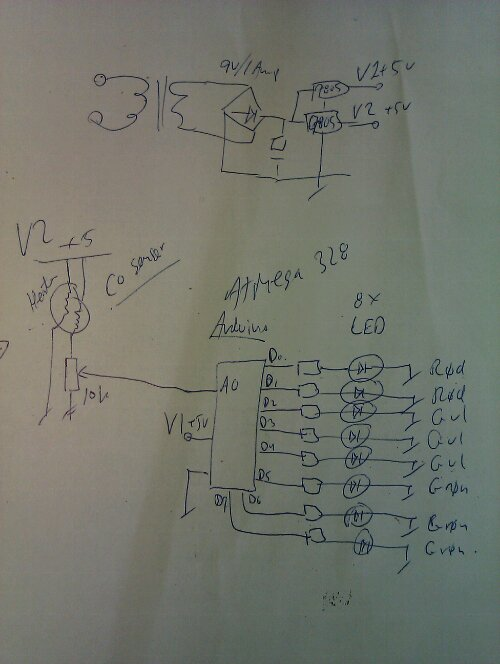 9V/1Amp
7805
V1+5V
7805
V2 +5V
V2 +5
Heater
CO sensor
10k
ATMega 328
Arduino
8x
LED
A0
V1+5V
D0
D1
D2
D3
D4
D5
D6
D7
Rød
Rød
Gul
Gul
Gul
Grøn
Grøn
Grøn.